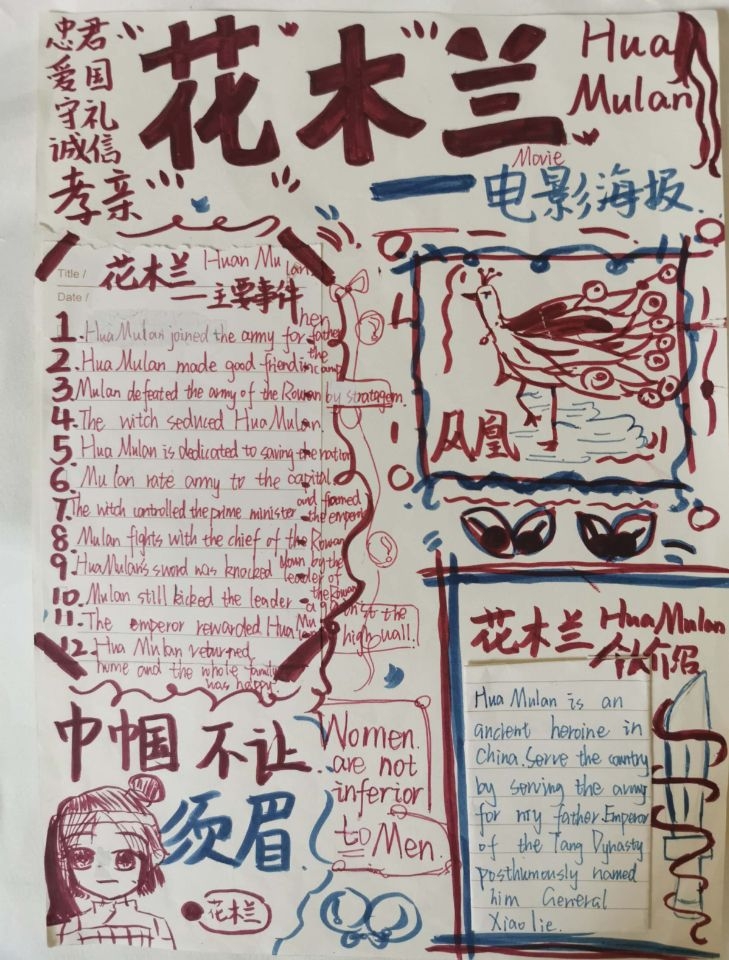 忠君
爱国
守礼
诚信
孝亲
花木兰
Hua
Mulan
Movie
—电影海报
Title /
Date /
花木兰 Huan Mulan
—主要事件
1. Hua Mulan joined the army for her father
2. Hua Mulan made good friend in the camp
3. Mulan defeated the army of the Rowan by stratagem.
4. The witch seduced Hua Mulan.
5. Hua Mulan is dedicated to saving the nation
6. Mulan rate army to the capital.
7. The witch controlled the prime minister and framed the emperor
8. Mulan fights with the chief of the Rowan
9. Hua Mulan's sword was knocked down by the leader of the Rowan
10. Mulan still kicked the leader against the high wall.
11. The emperor rewarded Hua Mulan
12. Hua Mulan returned
home and the whole family
was happy.
凤凰
花木兰 Hua Mulan
个人介绍
Hua Mulan is an
ancient heroine in
China. Serve the country
by serving the army
for my father. Emperor
of the Tang Dynasty
posthumously named
him General
Xiao lie.
巾帼不让
须眉
Women
are not
inferior
to Men.
花木兰